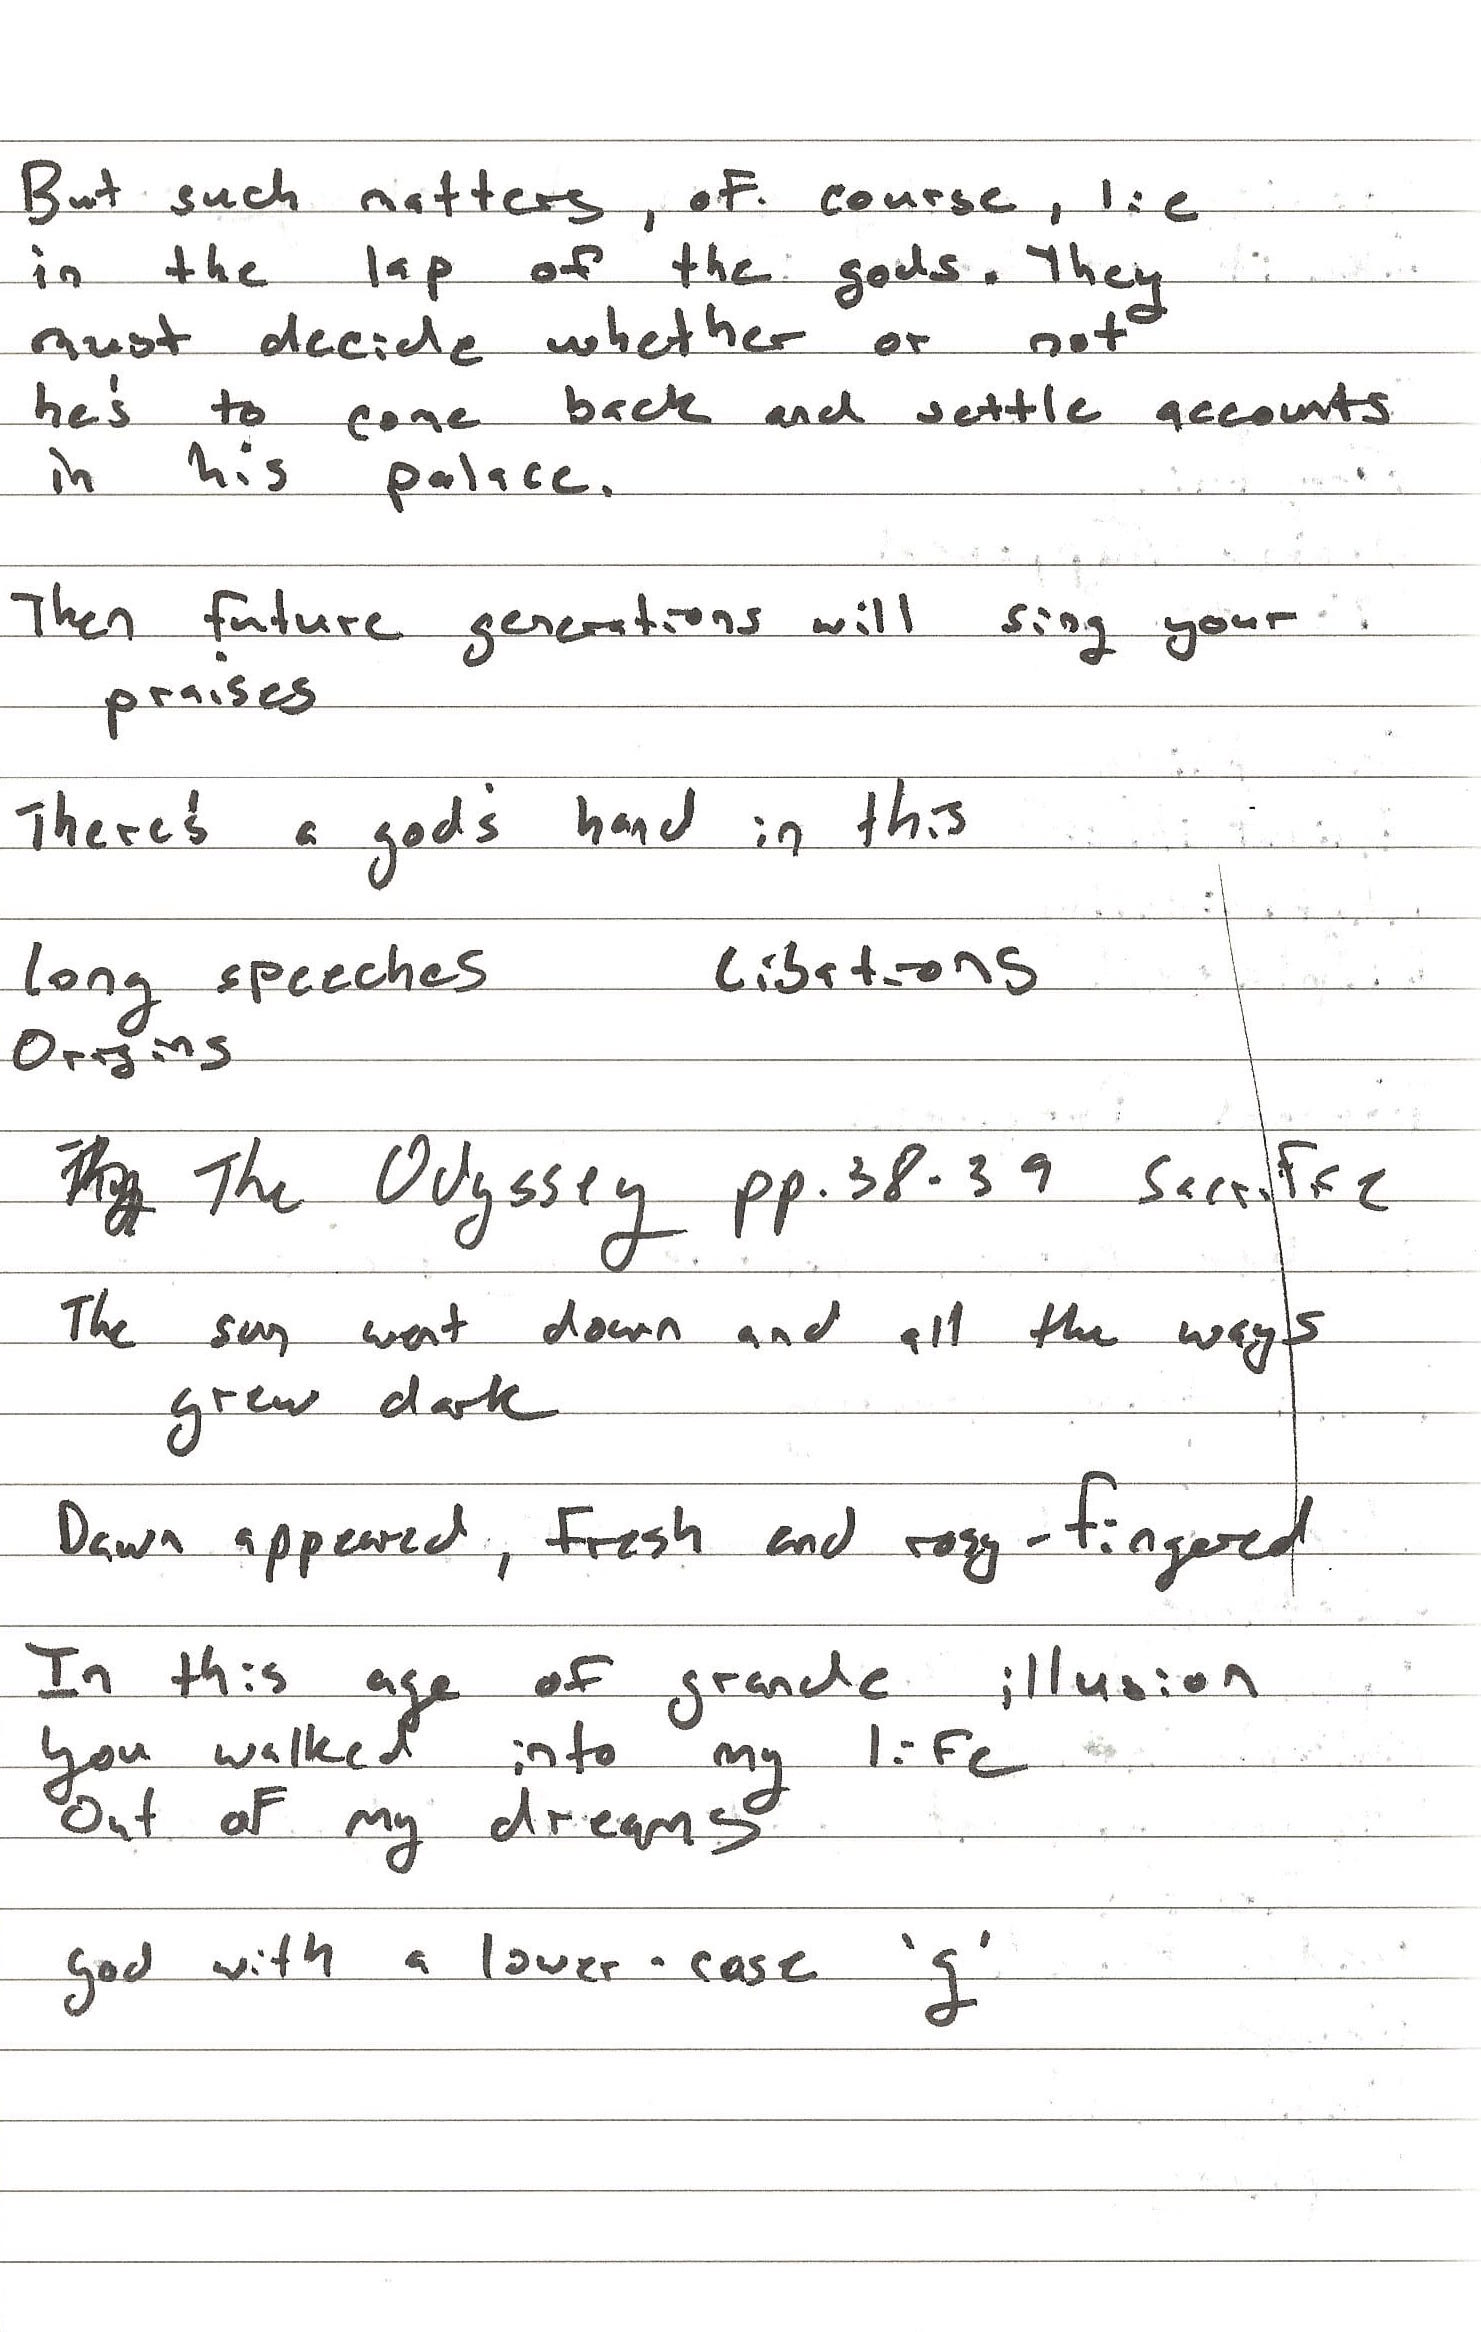 But such matters, of course, lie
in the lap of the gods. They
must decide whether or not
he's to come back and settle accounts
in his palace.
Then future generations will sing your
praises
There's a god's hand in this
long speeches Libations
Origins
The Odyssey pp. 38-39 Sacrifice
The sun went down and all the ways
grew dark
Dawn appeared, fresh and rosy-fingered
In this age of grande illusion
You walked into my life
Out of my dreams
god with a lower-case 'g'